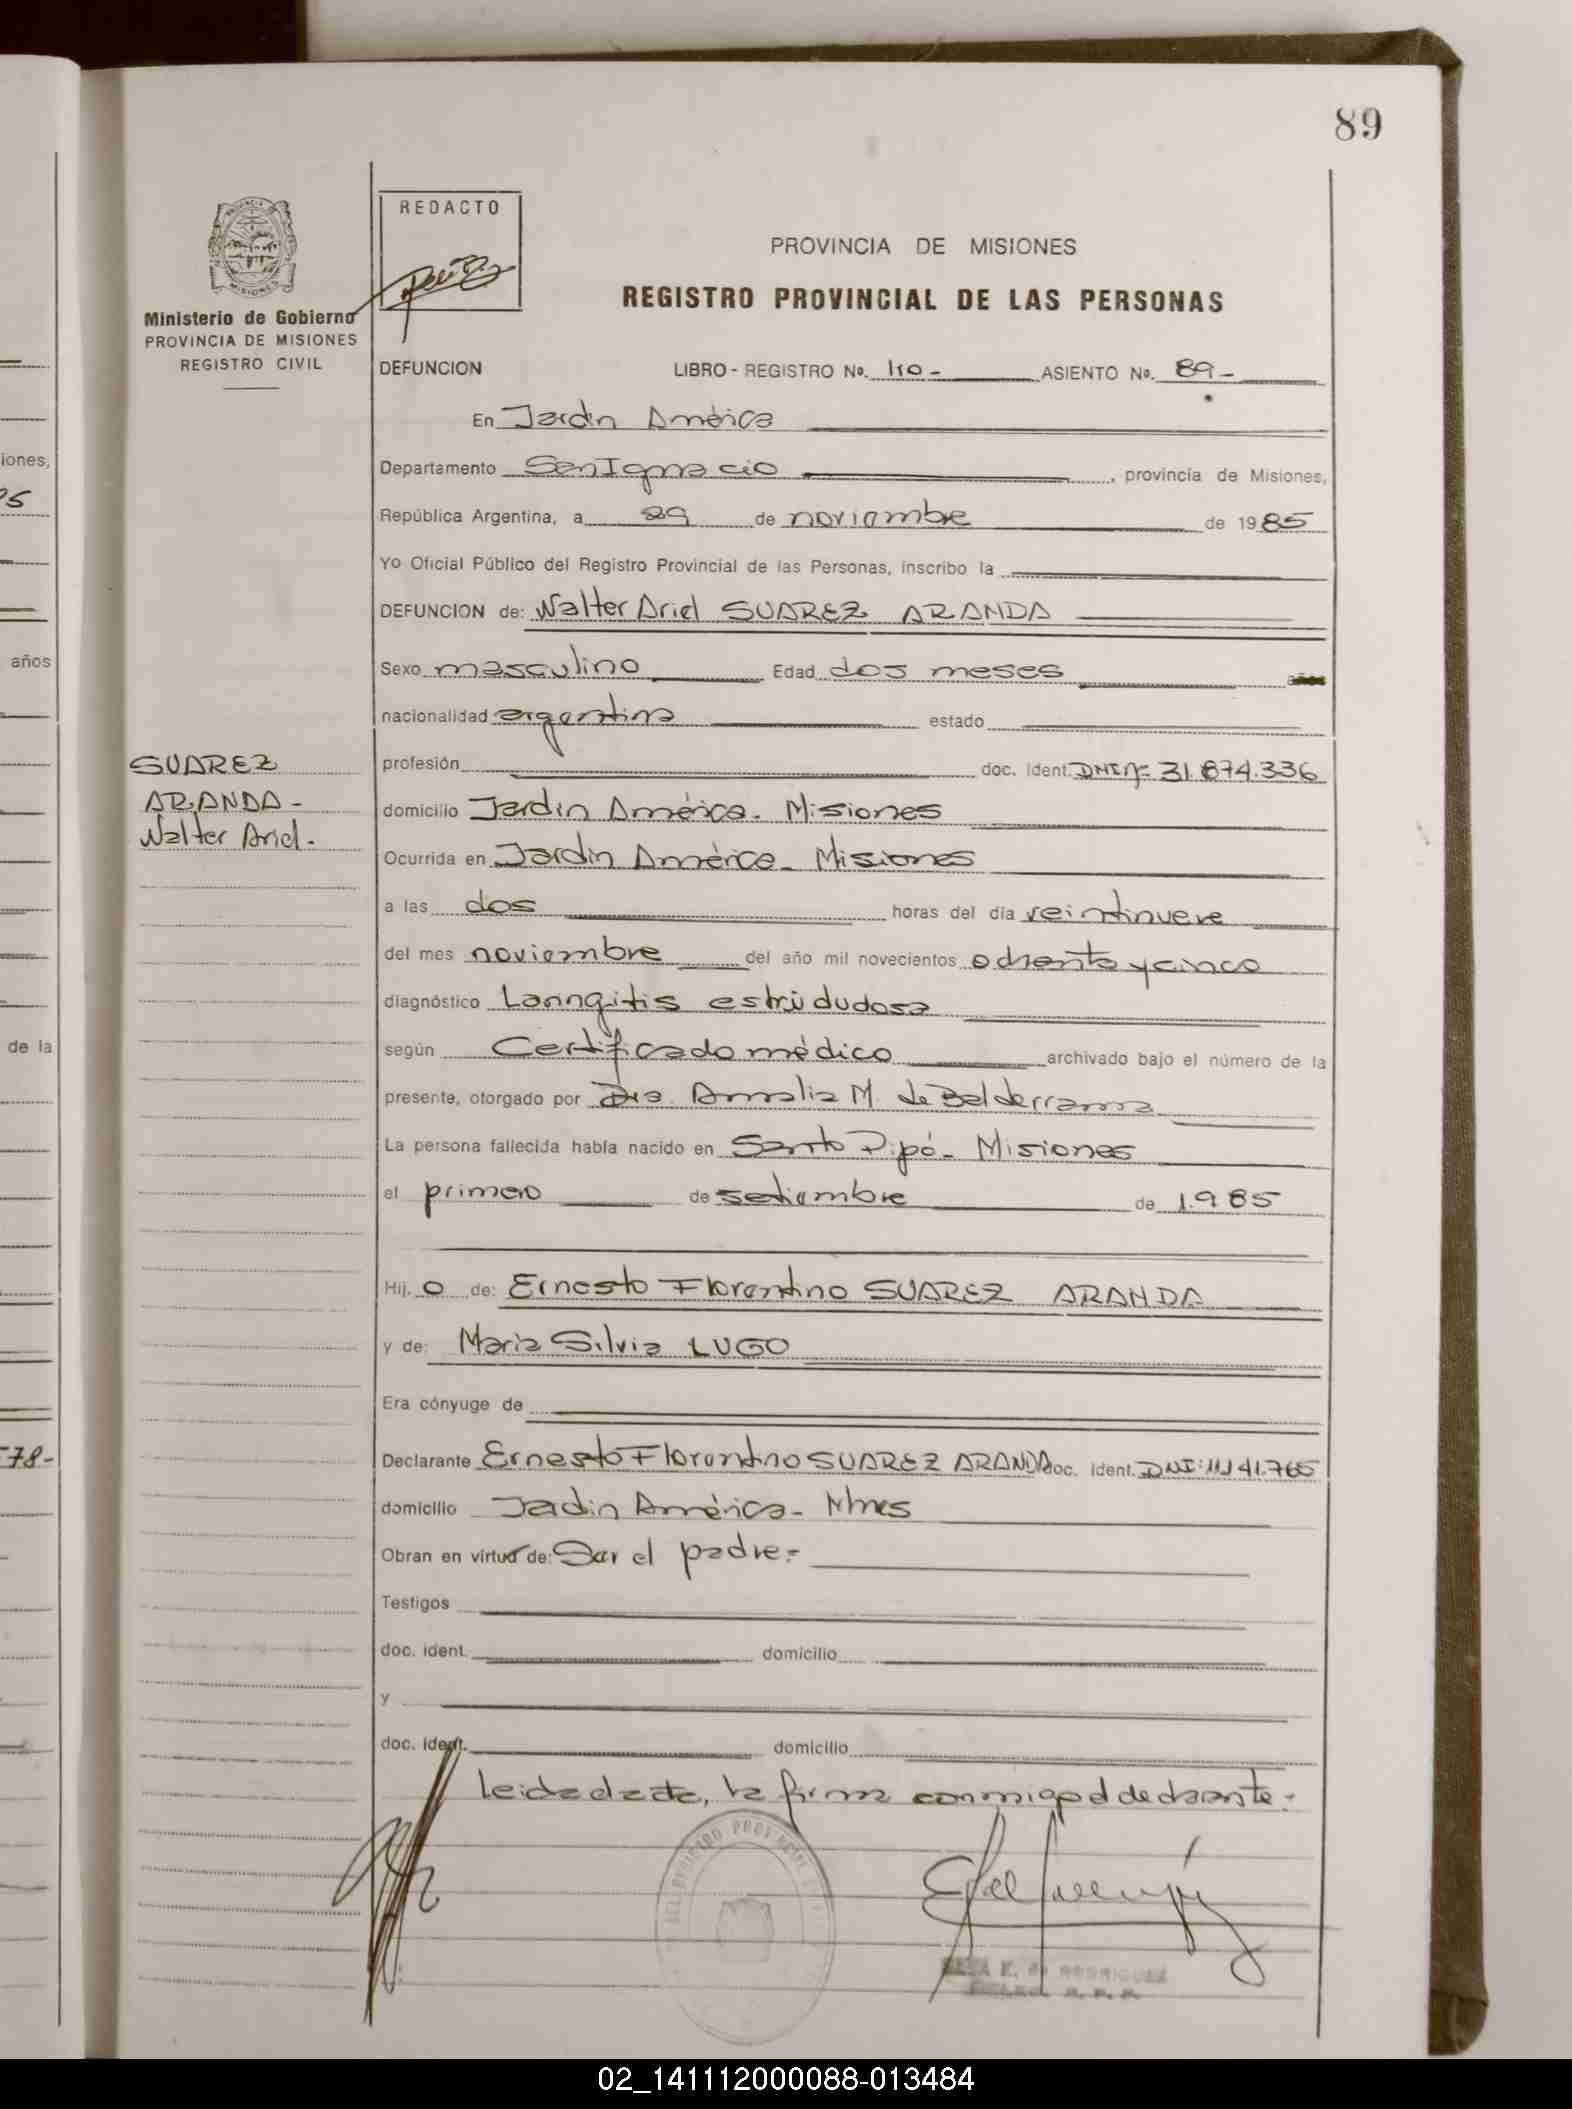 89
REDACTO
PROVINCIA DE MISIONES
REGISTRO PROVINCIAL DE LAS PERSONAS
Ministerio de Gobierno
PROVINCIA DE MISIONES
REGISTRO CIVIL
DEFUNCION LIBRO - REGISTRO No. 110- ASIENTO No. 89-
En Jardin América
Departamento San Ignacio, provincia de Misiones,
República Argentina, a 29 de noviembre de 1985
Yo Oficial Público del Registro Provincial de las Personas, inscribo la
DEFUNCION de: Walter Ariel SUAREZ ARANDA
Sexo masculino Edad dos meses años
nacionalidad argentina estado
profesión doc. ident. DNI Nº 31.874.336
SUAREZ
ARANDA-
Walter Ariel.
domicilio Jardin América. Misiones
Ocurrida en Jardin América- Misiones
a las dos horas del día veintinueve
del mes noviembre del año mil novecientos ochenta y cinco
diagnóstico Laringitis estridudosa
según Certificado médico archivado bajo el número de la
presente, otorgado por Dra. Amalia M. de Balderrama
La persona fallecida había nacido en Santo Pipó- Misiones
el primero de setiembre de 1.985
Hij. o de: Ernesto Florentino SUAREZ ARANDA
y de: Maria Silvia LUGO
Era cónyuge de
Declarante Ernesto Florentino SUAREZ ARANDA doc. ident. DNI: 11.141.765
domicilio Jardin América- Mnes
Obran en virtud de: Ser el padre=
Testigos
doc. ident. domicilio
y
doc. ident. domicilio
leida el acta, la firma conmigo el declarante=
DEL REGISTRO PROVINCIAL
K. de RODRIGUEZ
iones,
años
de la
78-
02_141112000088-013484